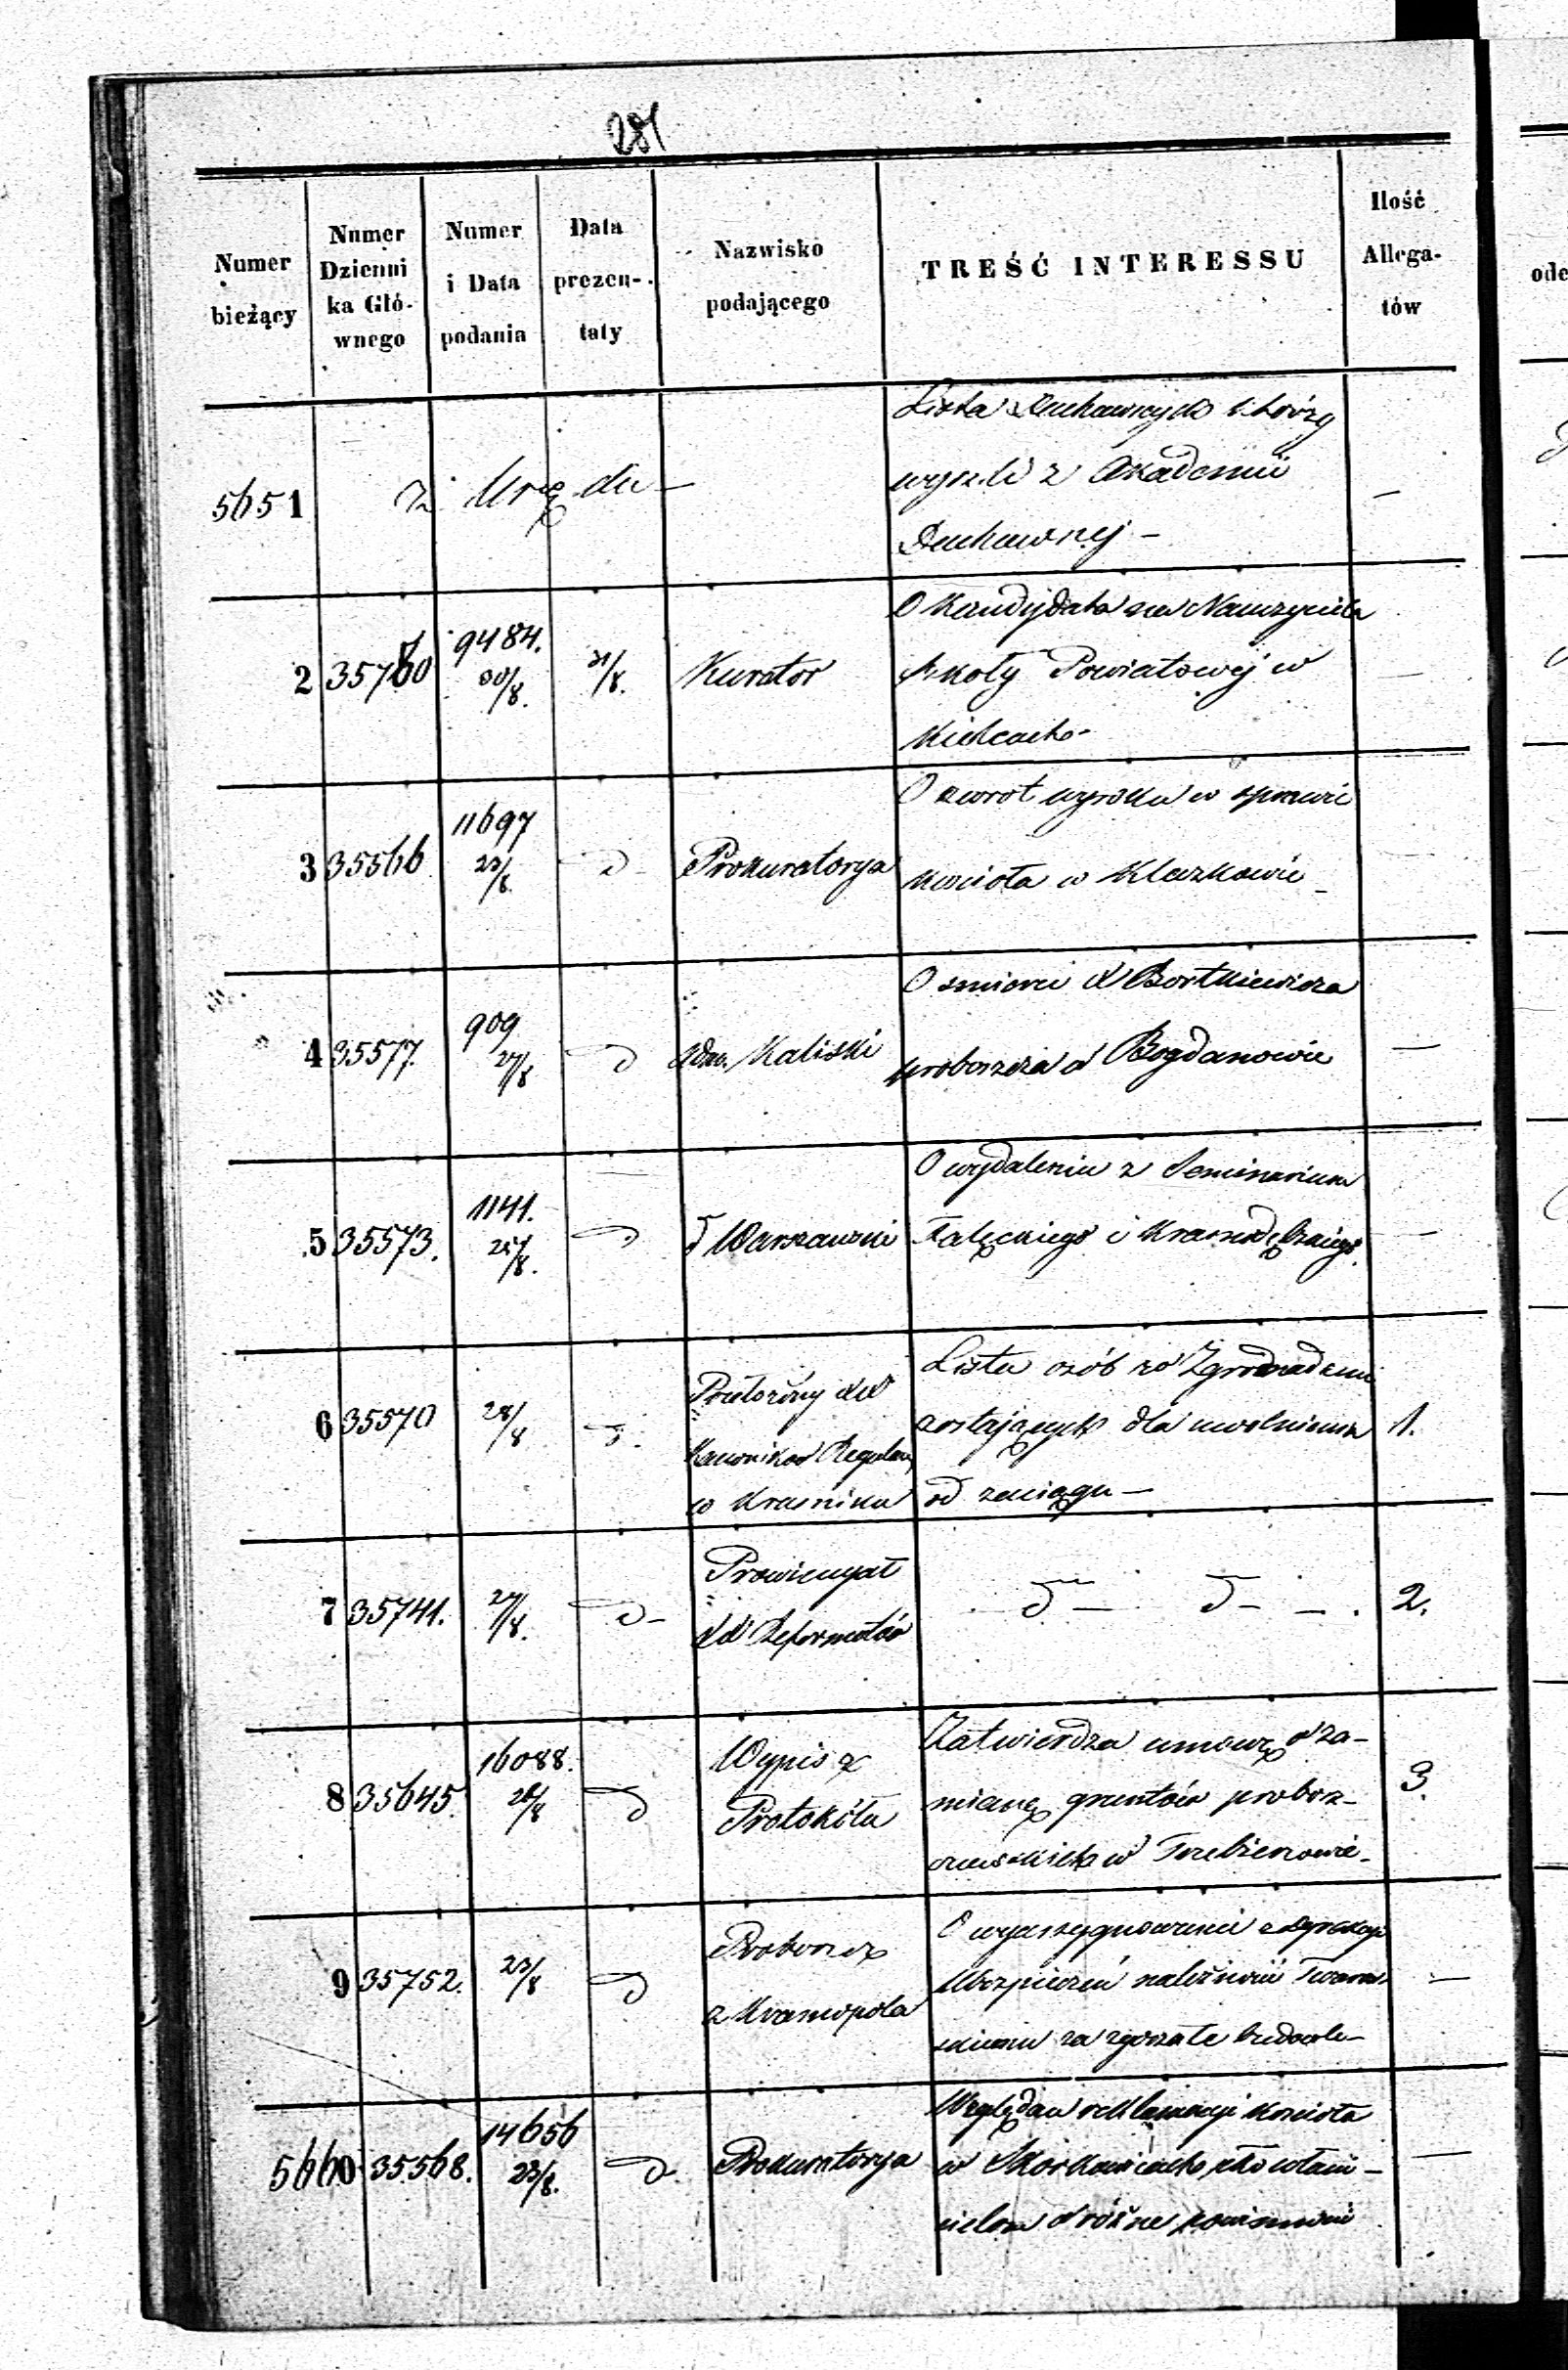 281
Numer bieżący
Numer Dzienni ka Głó- wnego
Numer i Data podania
Data prezen- taty
Nazwisko podającego
TREŚĆ INTERESSU
Ilość Allega- tów
ode
5651
z Urzędu —
Lista Duchownych którzy
wyszli z Akademii
Duchownej —
—
2
357
9484.
30/8.
31/8.
Kurator
O Kandydata na Nauczyciela
Szkoły Powiatowéj w
Kielcach -
3
35566
11697
23/8.
d -
Prokuratorya
O zwrot wyroku w sprawie
kościoła w Kleczkowie -
4
35577.
909
27/8
d
Adm. Kaliski
O śmierci X Bortkiewicza
proboszcza w Bogdanowie
—
5
35573.
1141.
25/8.
d
d Warszawski
O wydaleniu z Seminarium
Załęckiego i
—
6
35570
28/8
d.
XX
Kanoników Regular
w Kraśniku
Lista osób w Zgromadzeniu
zostających dla uwolnienia
od zaciągu —
1.
7
35741.
27/8.
d -
Prowincyał
XX Reformatów
d — d — — .
2.
8
35645.
16088.
26/8
d
Wypis z
Protokółu
Zatwierdza umowę o za-
mianę gruntów probosz-
czowskich w
3.
9
35752.
23/8
d
Proboszcz
z Kranopola
O wyassygnowanie z Dyrekcyi
Ubezpieczeń należności
za zgorzałe budowle —
—
5660
35568.
14656
23/8.
d.
Prokuratorya
Względem reklamacyi kościoła
w Skórkowicach
o różne powinności
—